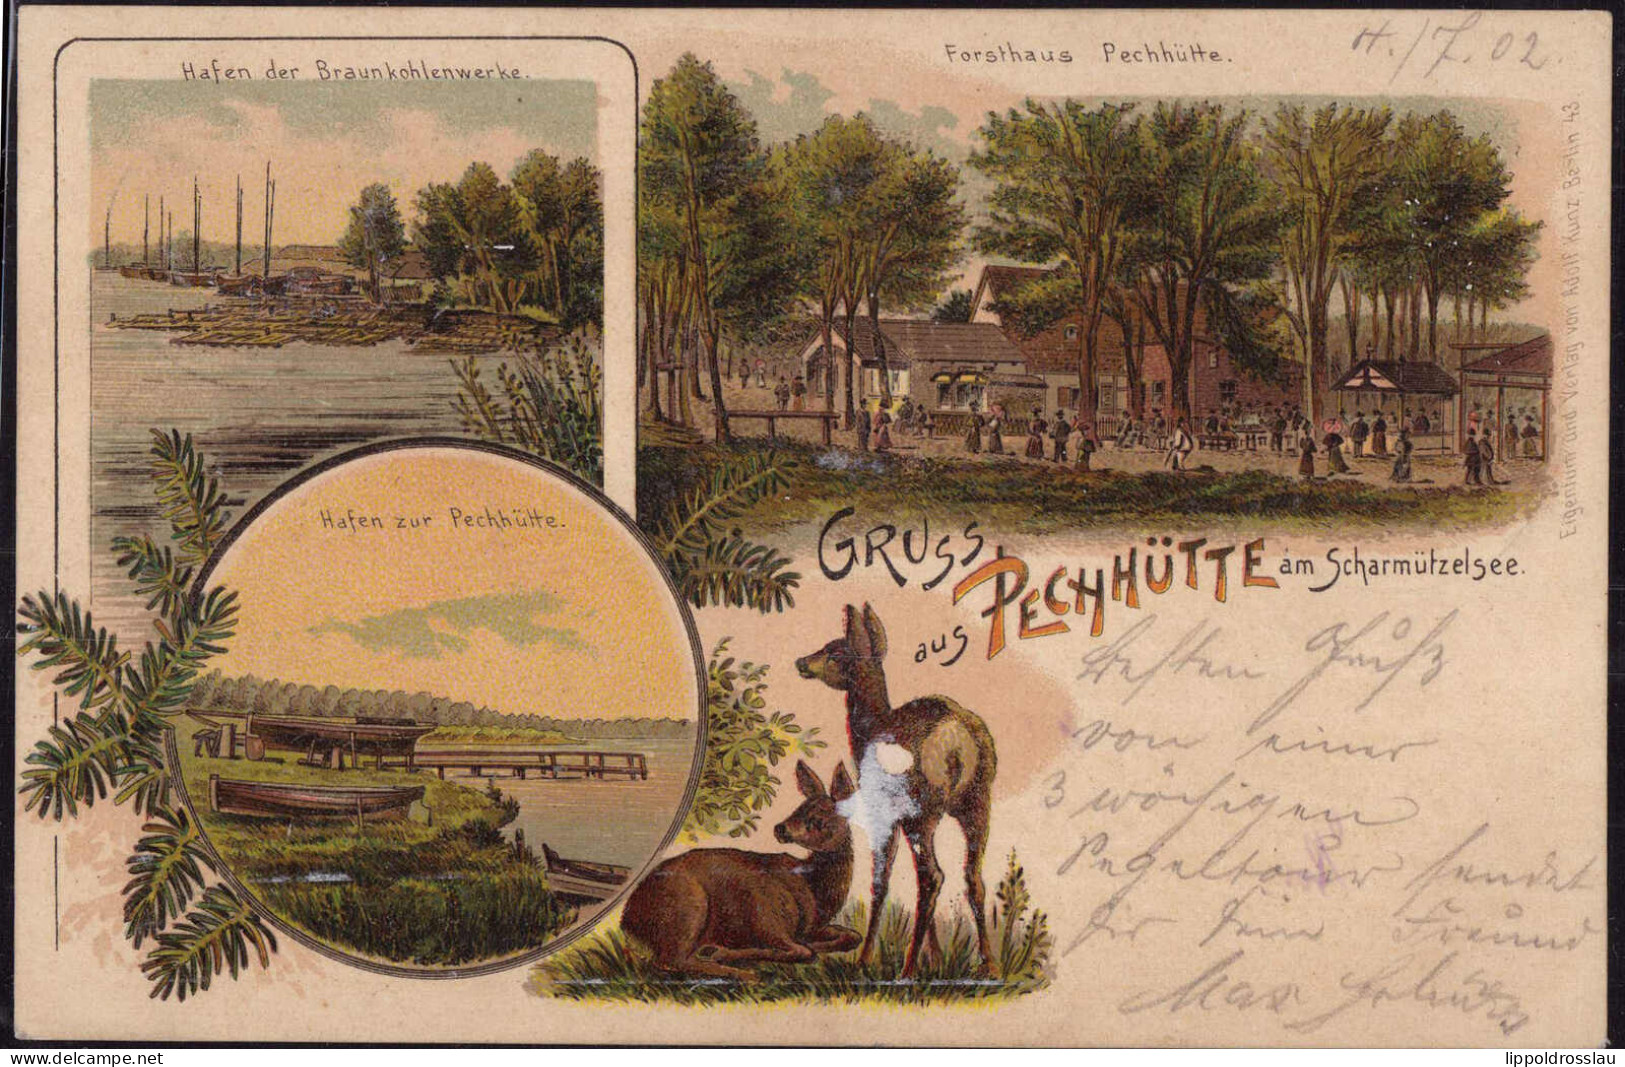 Hafen der Braunkohlenwerke.
Forsthaus Pechhütte.
/7. 02.
Eigentum und Verlag von Adolf Kunz, Berlin 43.
Hafen zur Pechhütte.
GRUSS
aus PECHHÜTTE am Scharmützelsee.
Besten Gruß
von einer
3 wöchigen
Segeltour sendet
Dir Dein Freund
Max
lippoldrosslau